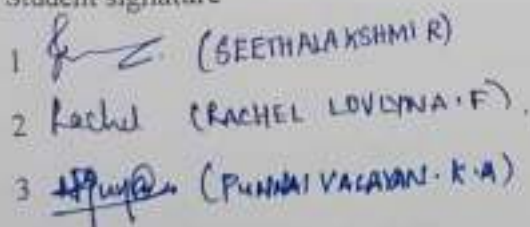 Student signature
1 (SEETHALAKSHMI R)
2 Rachel (RACHEL LOVLYNA. F).
3 (PUNNAI VALAVAN. K.A)